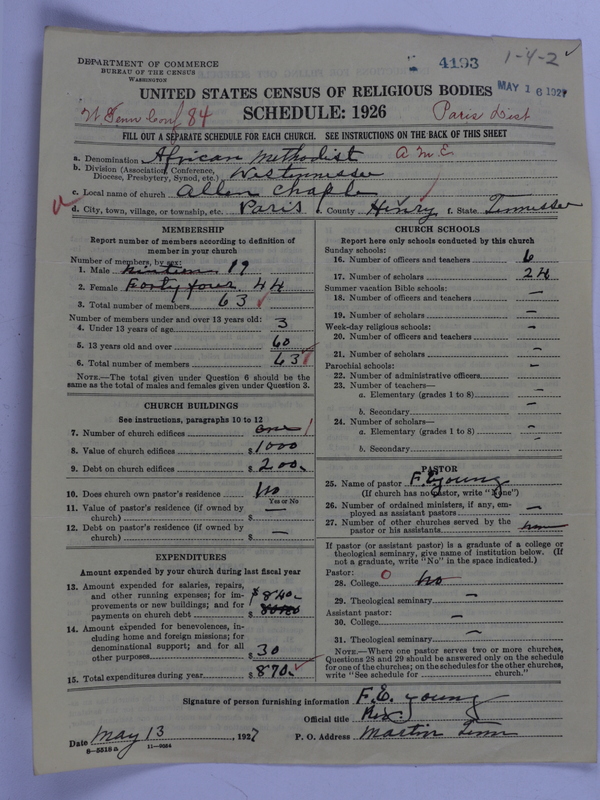 DEPARTMENT OF COMMERCE
BUREAU OF THE CENSUS
WASHINGTON
4193
1-4-2
MAY 16 1927
UNITED STATES CENSUS OF RELIGIOUS BODIES
W. Tenn Conf 84
SCHEDULE: 1926
Paris Dist
FILL OUT A SEPARATE SCHEDULE FOR EACH CHURCH. SEE INSTRUCTIONS ON THE BACK OF THIS SHEET
a. Denomination African Methodist A M E
b. Division (Association, Conference, Diocese, Presbytery, Synod, etc.) Westennessee
c. Local name of church Allen Chaple
d. City, town, village, or township, etc. Paris e. County Henry f. State Tennessee
MEMBERSHIP
Report number of members according to definition of member in your church
Number of members, by sex:
1. Male 19
2. Female Forty four. 44
3. Total number of members 63
Number of members under and over 13 years old:
4. Under 13 years of age 3
5. 13 years old and over 60
6. Total number of members 63
NOTE.—The total given under Question 6 should be the same as the total of males and females given under Question 3.
CHURCH BUILDINGS
See instructions, paragraphs 10 to 12
7. Number of church edifices one 1
8. Value of church edifices $ 1000
9. Debt on church edifices $ 200
10. Does church own pastor's residence No
Yes or No
11. Value of pastor's residence (if owned by church) $ —
12. Debt on pastor's residence (if owned by church) $ —
EXPENDITURES
Amount expended by your church during last fiscal year
13. Amount expended for salaries, repairs, and other running expenses; for improvements or new buildings; and for payments on church debt $ 840
14. Amount expended for benevolences, including home and foreign missions; for denominational support; and for all other purposes $ 30
15. Total expenditures during year $ 870
CHURCH SCHOOLS
Report here only schools conducted by this church
Sunday schools:
16. Number of officers and teachers 6
17. Number of scholars 24
Summer vacation Bible schools:
18. Number of officers and teachers —
19. Number of scholars —
Week-day religious schools:
20. Number of officers and teachers —
21. Number of scholars —
Parochial schools:
22. Number of administrative officers —
23. Number of teachers—
a. Elementary (grades 1 to 8) —
b. Secondary —
24. Number of scholars—
a. Elementary (grades 1 to 8) —
b. Secondary —
PASTOR
25. Name of pastor F. E. Young
(If church has no pastor, write "None")
26. Number of ordained ministers, if any, employed as assistant pastors —
27. Number of other churches served by the pastor or his assistants
If pastor (or assistant pastor) is a graduate of a college or theological seminary, give name of institution below. (If not a graduate, write "No" in the space indicated.)
Pastor:
28. College 0 No
29. Theological seminary —
Assistant pastor:
30. College —
31. Theological seminary —
NOTE.—Where one pastor serves two or more churches, Questions 28 and 29 should be answered only on the schedule for one of the churches; on the schedules for the other churches, write "See schedule for church."
Signature of person furnishing information F. E. Young
Official title
Date May 13, 1927
P. O. Address Martin Tenn
8-5518a 11-9064